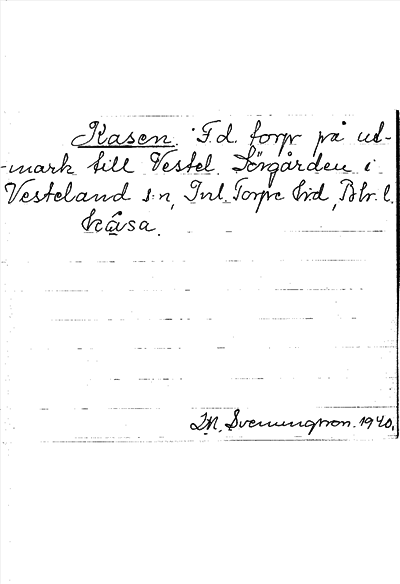 Kasen. F.d. torp på ut-
-mark till Vestel Sörgården i
Vesteland s:n, Inl. Torpe hrd, Bhr. l.
kåsa.
M. Svenungsson. 1940.